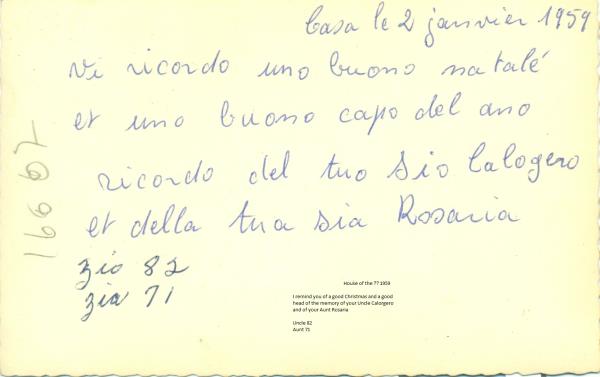 Casa le 2 janvier 1959
Vi ricordo uno buono natalé
et uno buono capo del ano
ricordo del tuo Sio Calogero
et della tua sia Rosaria
zio 82
zia 71
House of the ?? 1959
I remind you of a good Christmas and a good
head of the memory of your Uncle Calorgero
and of your Aunt Rosaria
Uncle 82
Aunt 71